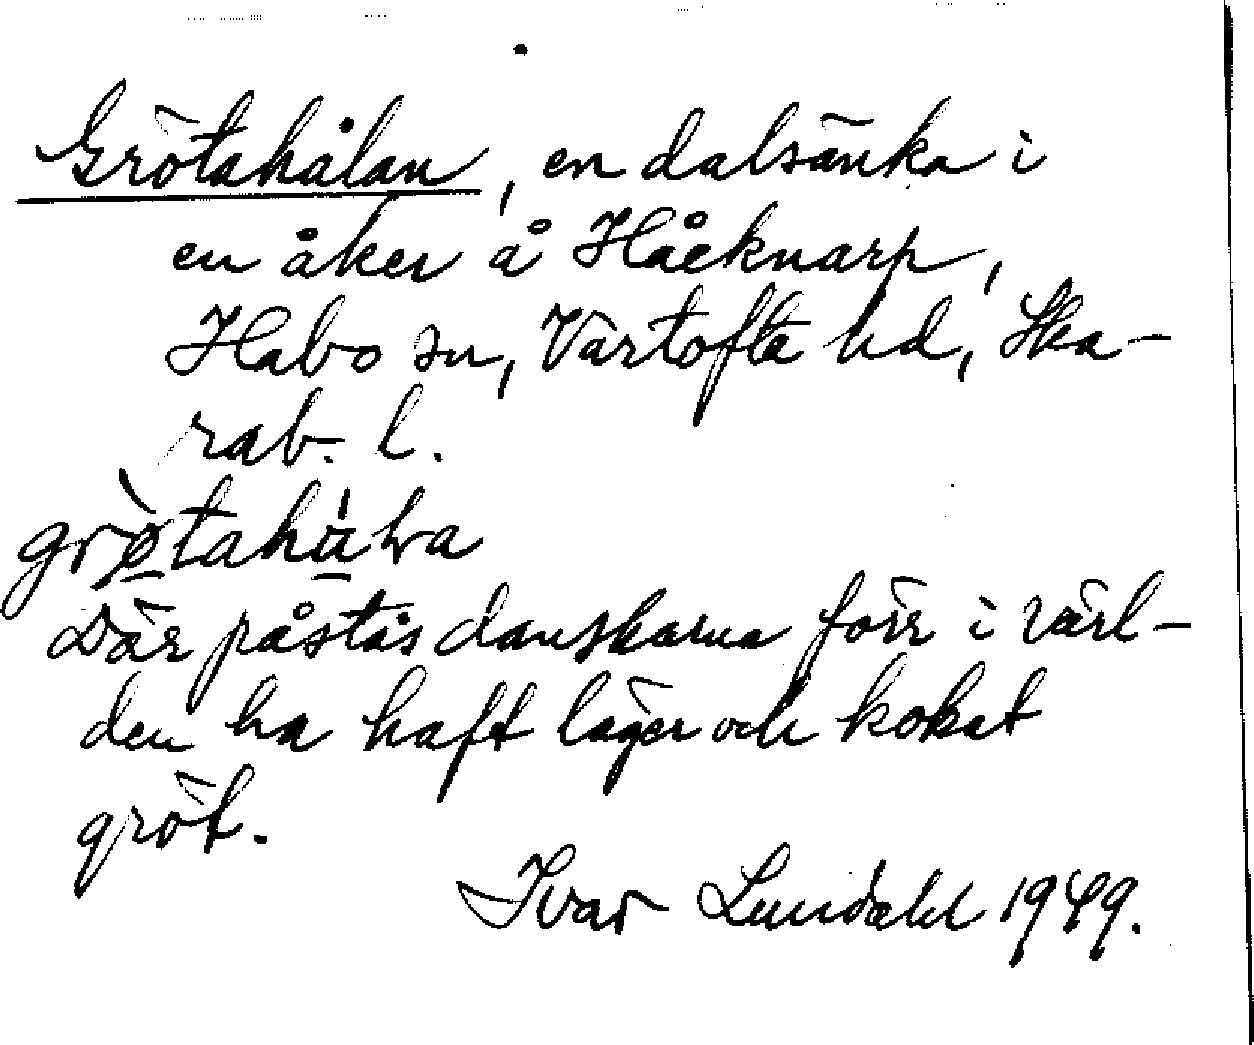 Grötahålan, en dalsänka i
en åker å Håeknarp,
Habo sn, Vartofta hd, Ska-
rab. l.
Där påstås danskarna förr i värl-
den ha haft läger och kokat
gröt.
Ivar Lundahl 1949.